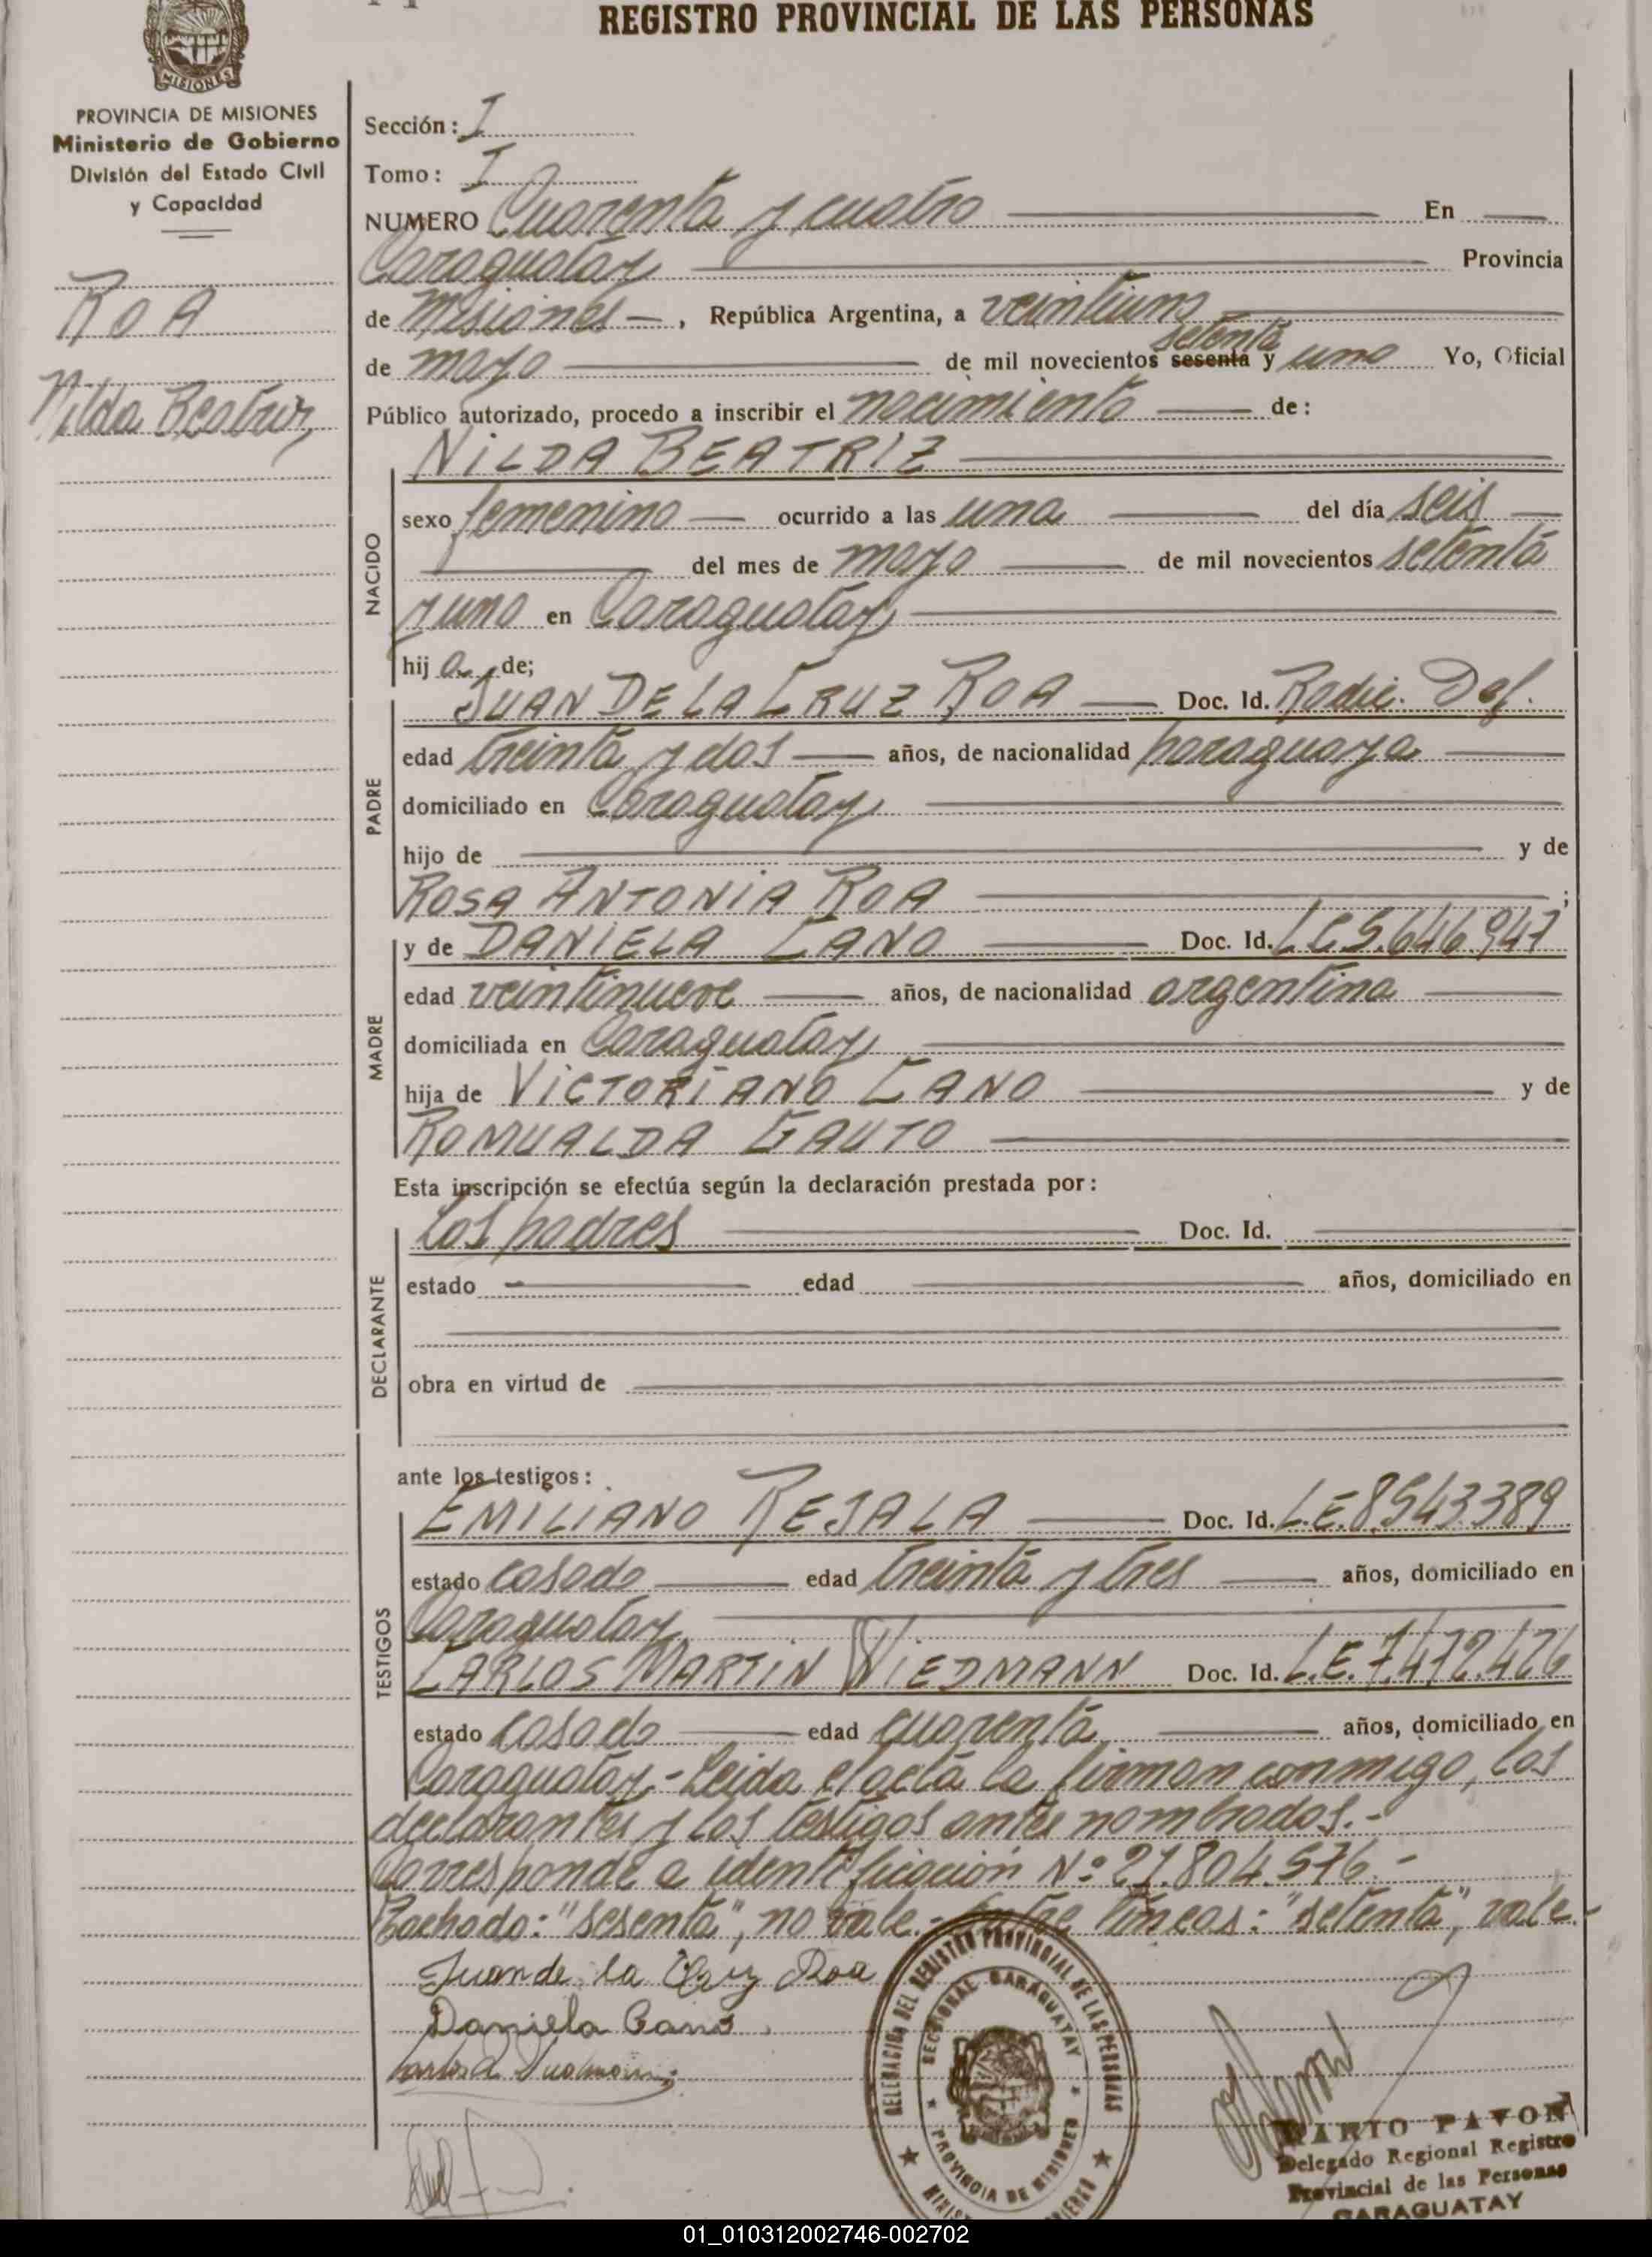 REGISTRO PROVINCIAL DE LAS PERSONAS
MISIONES
PROVINCIA DE MISIONES
Ministerio de Gobierno
División del Estado Civil
y Capacidad
ROA
Nilda Beatriz
Sección: I
Tomo: I
NUMERO Cuarenta y cuatro En
Caraguatay Provincia
de Misiones, República Argentina, a veintiuno
setenta
de mayo de mil novecientos sesenta y uno Yo, Oficial
Público autorizado, procedo a inscribir el nacimiento de:
NACIDO
NILDA BEATRIZ
sexo femenino ocurrido a las una del día seis
del mes de mayo de mil novecientos setenta
y uno en Caraguatay
hija de;
PADRE
JUAN DE LA CRUZ ROA Doc. Id. Radic. Def.
edad treinta y dos años, de nacionalidad paraguaya
domiciliado en Caraguatay
hijo de y de
ROSA ANTONIA ROA ;
MADRE
y de DANIELA CANO Doc. Id. LC 5.646.947
edad veintinueve años, de nacionalidad argentina
domiciliada en Caraguatay
hija de VICTORIANO CANO y de
ROMUALDA GAUTO
Esta inscripción se efectúa según la declaración prestada por:
DECLARANTE
los padres Doc. Id.
estado edad años, domiciliado en
obra en virtud de
ante los testigos:
TESTIGOS
EMILIANO REJALA Doc. Id. L.E. 8.543.389
estado casado edad treinta y tres años, domiciliado en
Caraguatay
CARLOS MARTIN WIEDMANN Doc. Id. L.E. 7.472.426
estado casado edad cuarenta años, domiciliado en
Caraguatay.- Leida el acta la firman conmigo, los
declarantes y los testigos antes nombrados.-
Corresponde a identificación Nº 21.804.576.-
Tachado: "sesenta", no vale.- Entre líneas: "setenta", vale.-
Juan de la Cruz Roa
Daniela Cano
DELEGACION DEL REGISTRO PROVINCIAL DE LAS PERSONAS
SECCIONAL CARAGUATAY
PROVINCIA DE MISIONES
DARIO PAVON
Delegado Regional Registro
Provincial de las Personas
CARAGUATAY
01_010312002746-002702